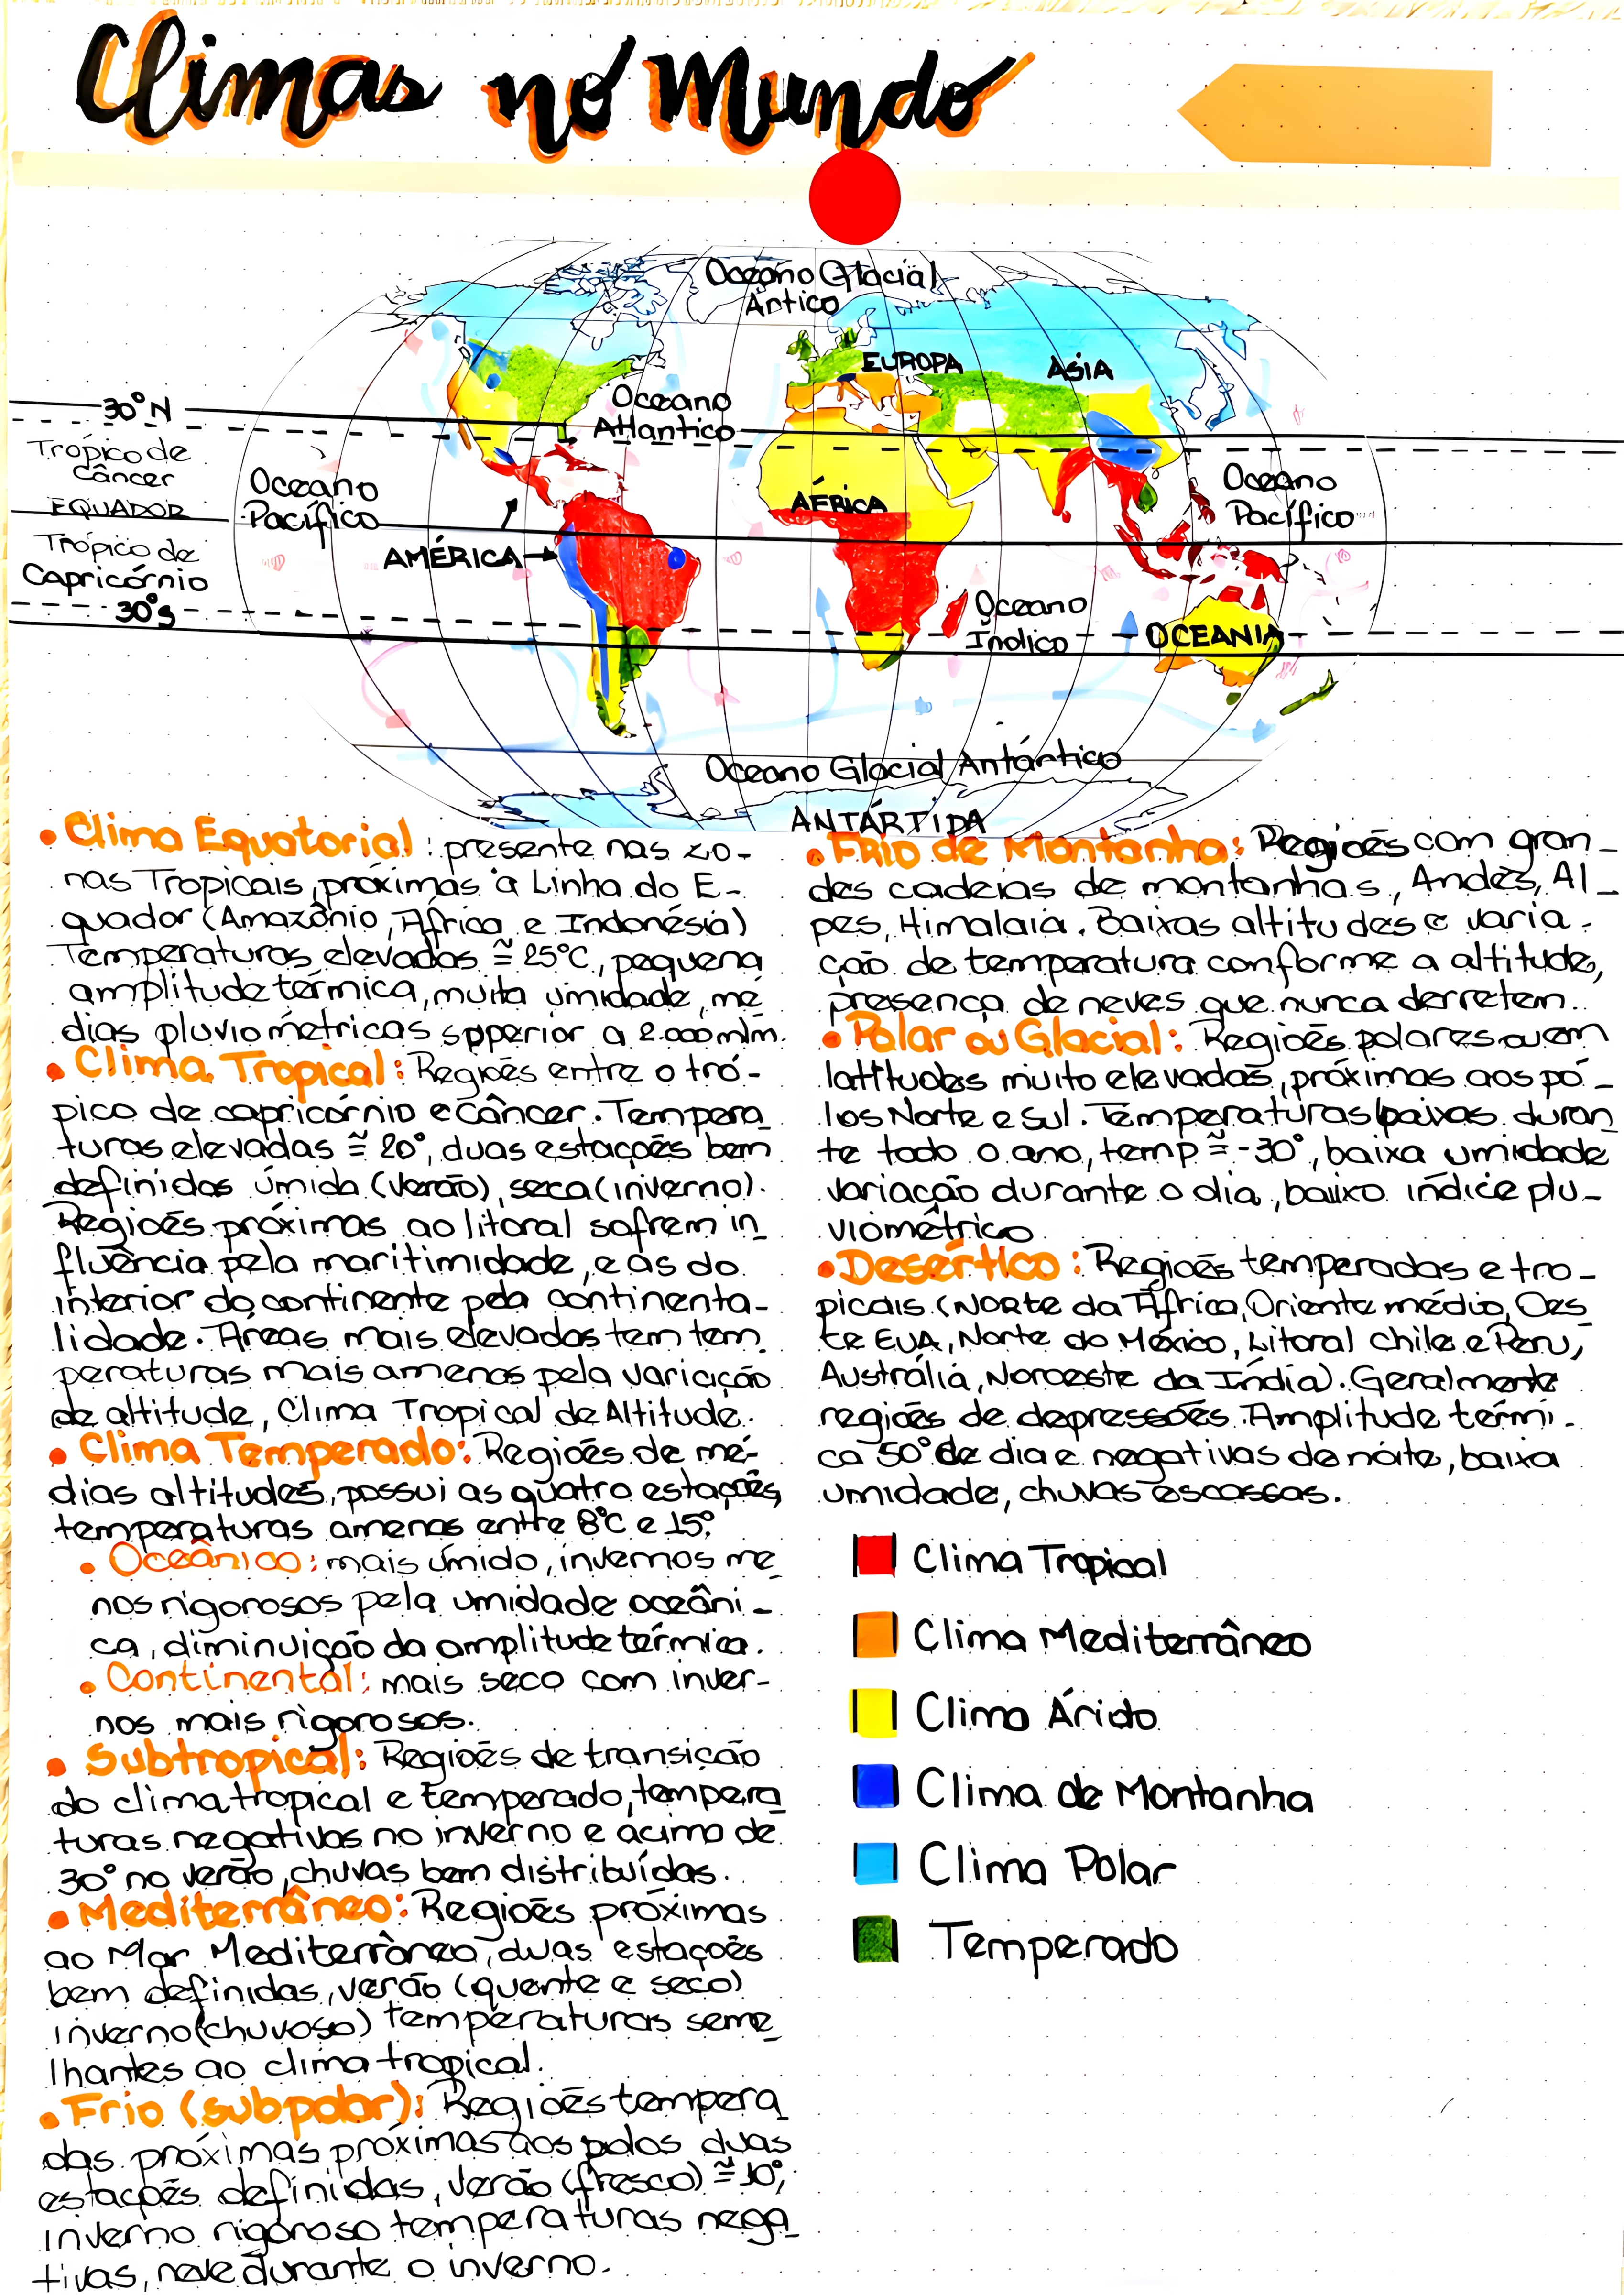 Climas no Mundo
Oceano Glacial
Ártico
EUROPA
ÁSIA
30°N
Oceano
Atlantico
Trópico de
Câncer
EQUADOR
Oceano
Pacífico
ÁFRICA
Oceano
Pacífico
Trópico de
Capricórnio
AMÉRICA
30°S
Oceano
Índico
OCEANIA
Oceano Glacial Antártico
ANTÁRTIDA
• Clima Equatorial: presente nas zo-
nas Tropicais, próximas à Linha do E-
quador (Amazônio, África e Indonésia)
Temperaturas elevadas ≅ 25°C, pequena
amplitude térmica, muita úmidade, mé
dias pluviométricas spperior a 2.000m/m.
• Clima Tropical: Regiões entre o tró-
pico de capricórnio e Câncer. Tempera
turas elevadas ≅ 20°, duas estações bem
definidas úmida (verão), seca (inverno).
Regiões próximas ao litoral sofrem in
fluência pela maritimidade, e as do
interior do continente pela continenta-
lidade. Áreas mais elevadas tem tem
peraturas mais amenas pela variação
de altitude, Clima Tropical de Altitude.
• Clima Temperado: Regiões de mé-
dias altitudes, possui as quatro estações,
temperaturas amenas entre 8°C e 15°.
• Oceânico: mais úmido, invernos me
nos rigorosos pela umidade oceâni-
ca, diminuição da amplitude térmica.
• Continental: mais seco com inver-
nos mais rigorosos.
• Subtropical: Regiões de transição
do clima tropical e temperado, tempera
turas negativas no inverno e acima de
30° no verão, chuvas bem distribuídas.
• Mediterrâneo: Regiões próximas
ao Mar Mediterrâneo, duas estações
bem definidas, verão (quente e seco)
inverno (chuvoso) temperaturas seme
lhantes ao clima tropical.
• Frio (subpolar): Regiões tempera
das próximas próximas aos polos duas
estações definidas, verão (fresco) ≅ 10°,
inverno rigoroso temperaturas nega
tivas, neve durante o inverno.
• Frio de Montanha: Regiões com gran-
des cadeias de montanhas, Andes, Al-
pes, Himalaia. Baixas altitudes e varia-
ção de temperatura conforme a altitude,
presença de neves que nunca derretem.
• Polar ou Glacial: Regiões polares ou em
latitudes muito elevadas, próximas aos pó-
los Norte e Sul. Temperaturas baixas duran
te todo o ano, temp ≅ -30°, baixa umidade
variação durante o dia, baixo índice plu-
viométrico
• Desértico: Regiões temperadas e tro-
picais (Norte da África, Oriente médio, Oes
te EUA, Norte do México, Litoral Chile e Peru,
Austrália, Noroeste da Índia). Geralmente
regiões de depressões. Amplitude térmi-
ca 50° de dia e negativas de noite, baixa
umidade, chuvas escassas.
Clima Tropical
Clima Mediterrâneo
Clima Árido
Clima de Montanha
Clima Polar
Temperado